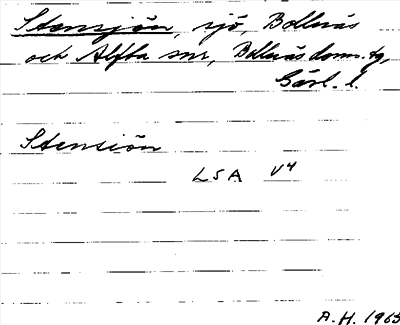 Stensjön, sjö, Bollnäs
och Alfta snr, Bollnäs doms. tg,
Gävl. l.
Stensiön
LSA V4
A.H. 1965